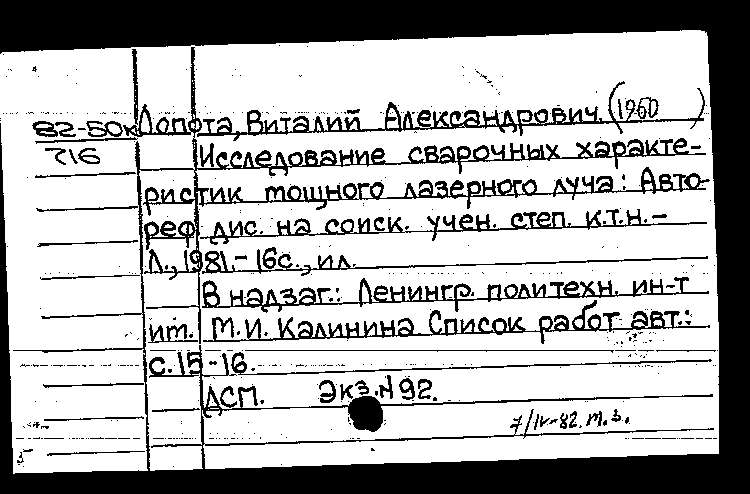 82-50к Лопота, Виталий Александрович. (1960)
716 Исследование сварочных характе-
ристик мощного лазерного луча: Авто-
реф дис. на соиск. учен. степ. к.т.н.-
Л., 1981.- 16с., ил.
В надзаг.: Ленингр. политехн. ин-т
им. М.И. Калинина Список работ авт.:
с. 15-16.
ДСП. Экз.N 92.
7/IV-82. т.з.